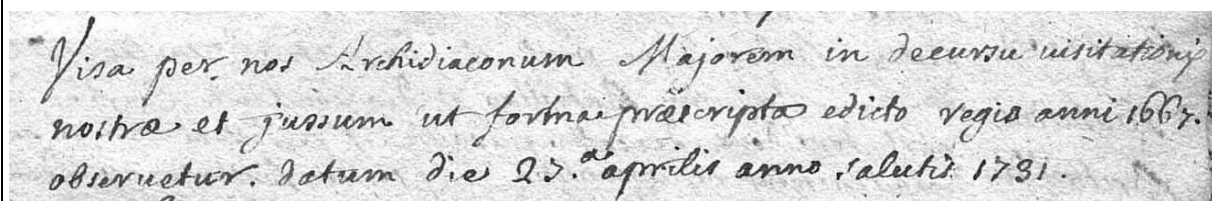 Visa per nos Archidiaconum Majorem in decursu visitationis
nostræ et jussum ut forma præscripta edicto regis anni 1667.
observetur. datum die 27.a aprilis anno salutis 1731.